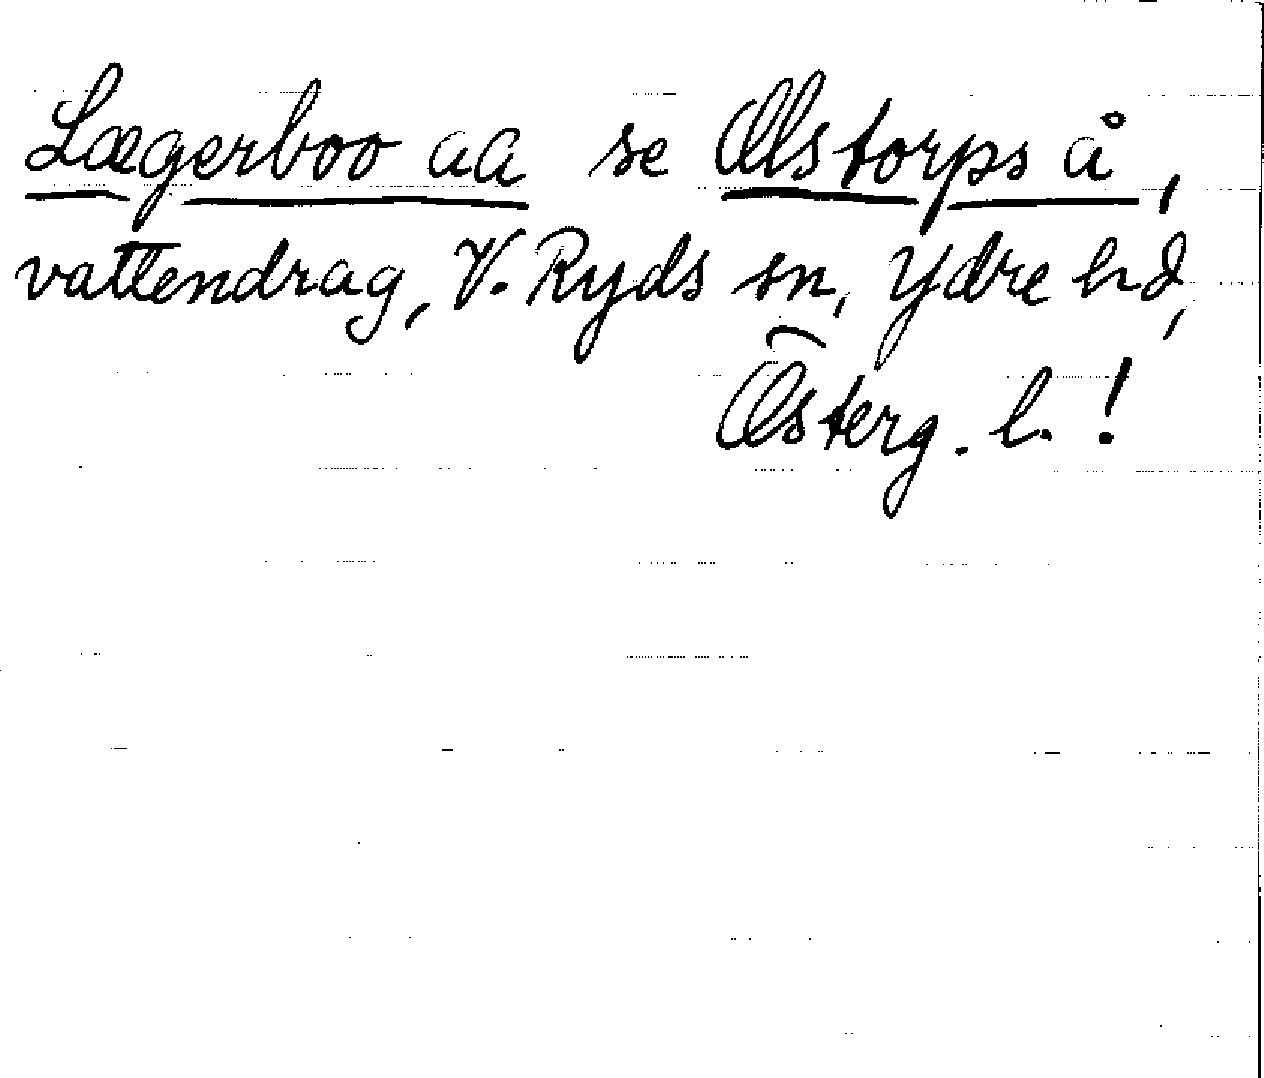 Lægerboo aa se Olstorps å,
vattendrag, V. Ryds sn, Ydre hd,
Österg. l.!